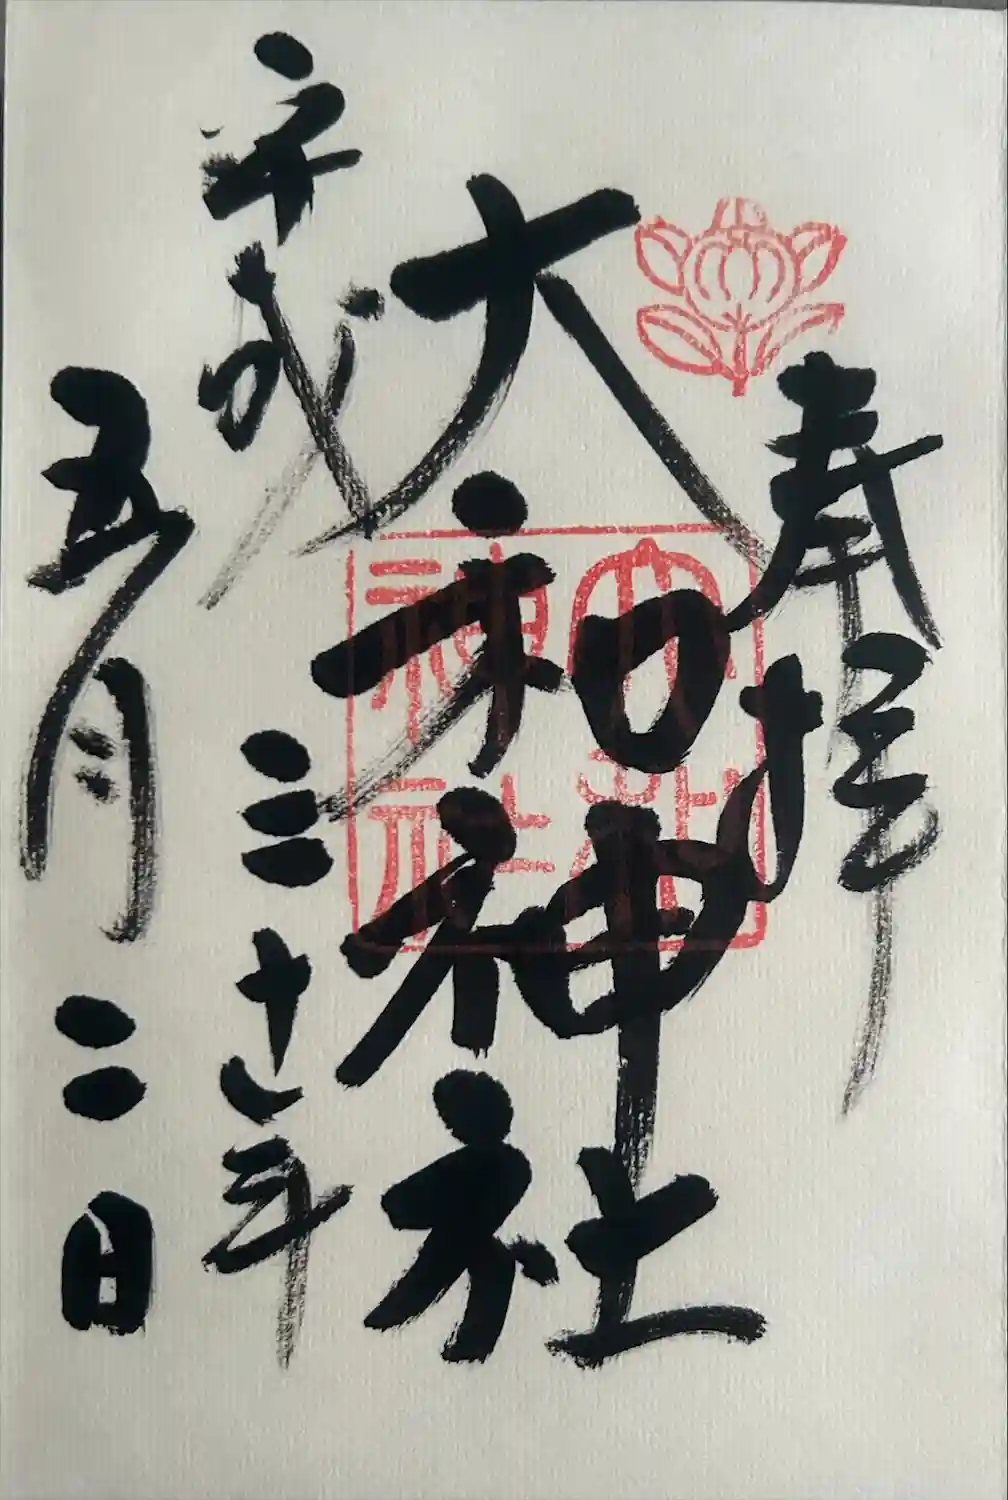 奉拝
大和神社
大和神社
平成三十年
五月二日